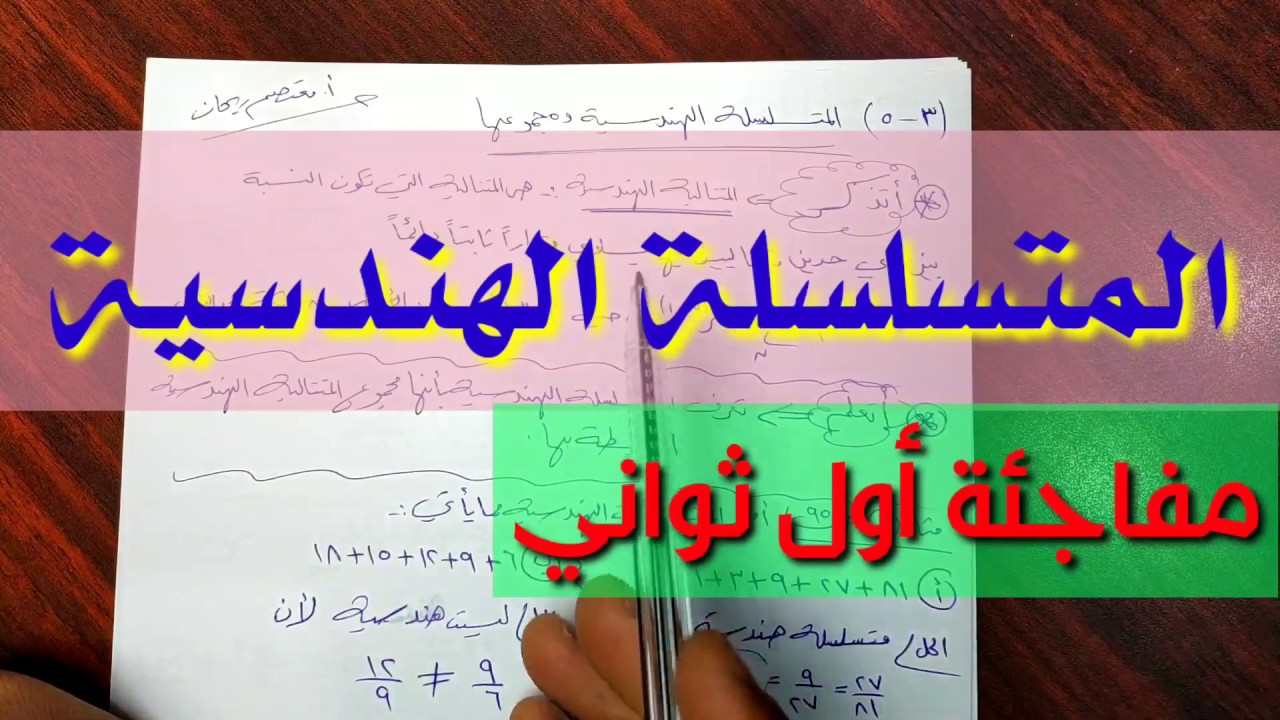 أ. معتصم ريحان
(٣-٥) المتسلسلة الهندسية ومجموعها
أتذكر المتتالية الهندسية :- هي المتتالية التي تكون النسبة
بين أي حدين ثابتاً دائماً
المتسلسلة الهندسية
أتعلم تعرف الهندسية بأنها مجموع المتتالية الهندسية
بها.
مفاجئة أول ثواني
الهندسية مما يأتي :-
أ) ٨١+٢٧+٩+٣+١
٦+٩+١٢+١٥+١٨
الحل/ متسلسلة هندسية
ليست هندسية لأن
٢٧/٨١ = ٩/٢٧ =
٩/٦ ≠ ١٢/٩